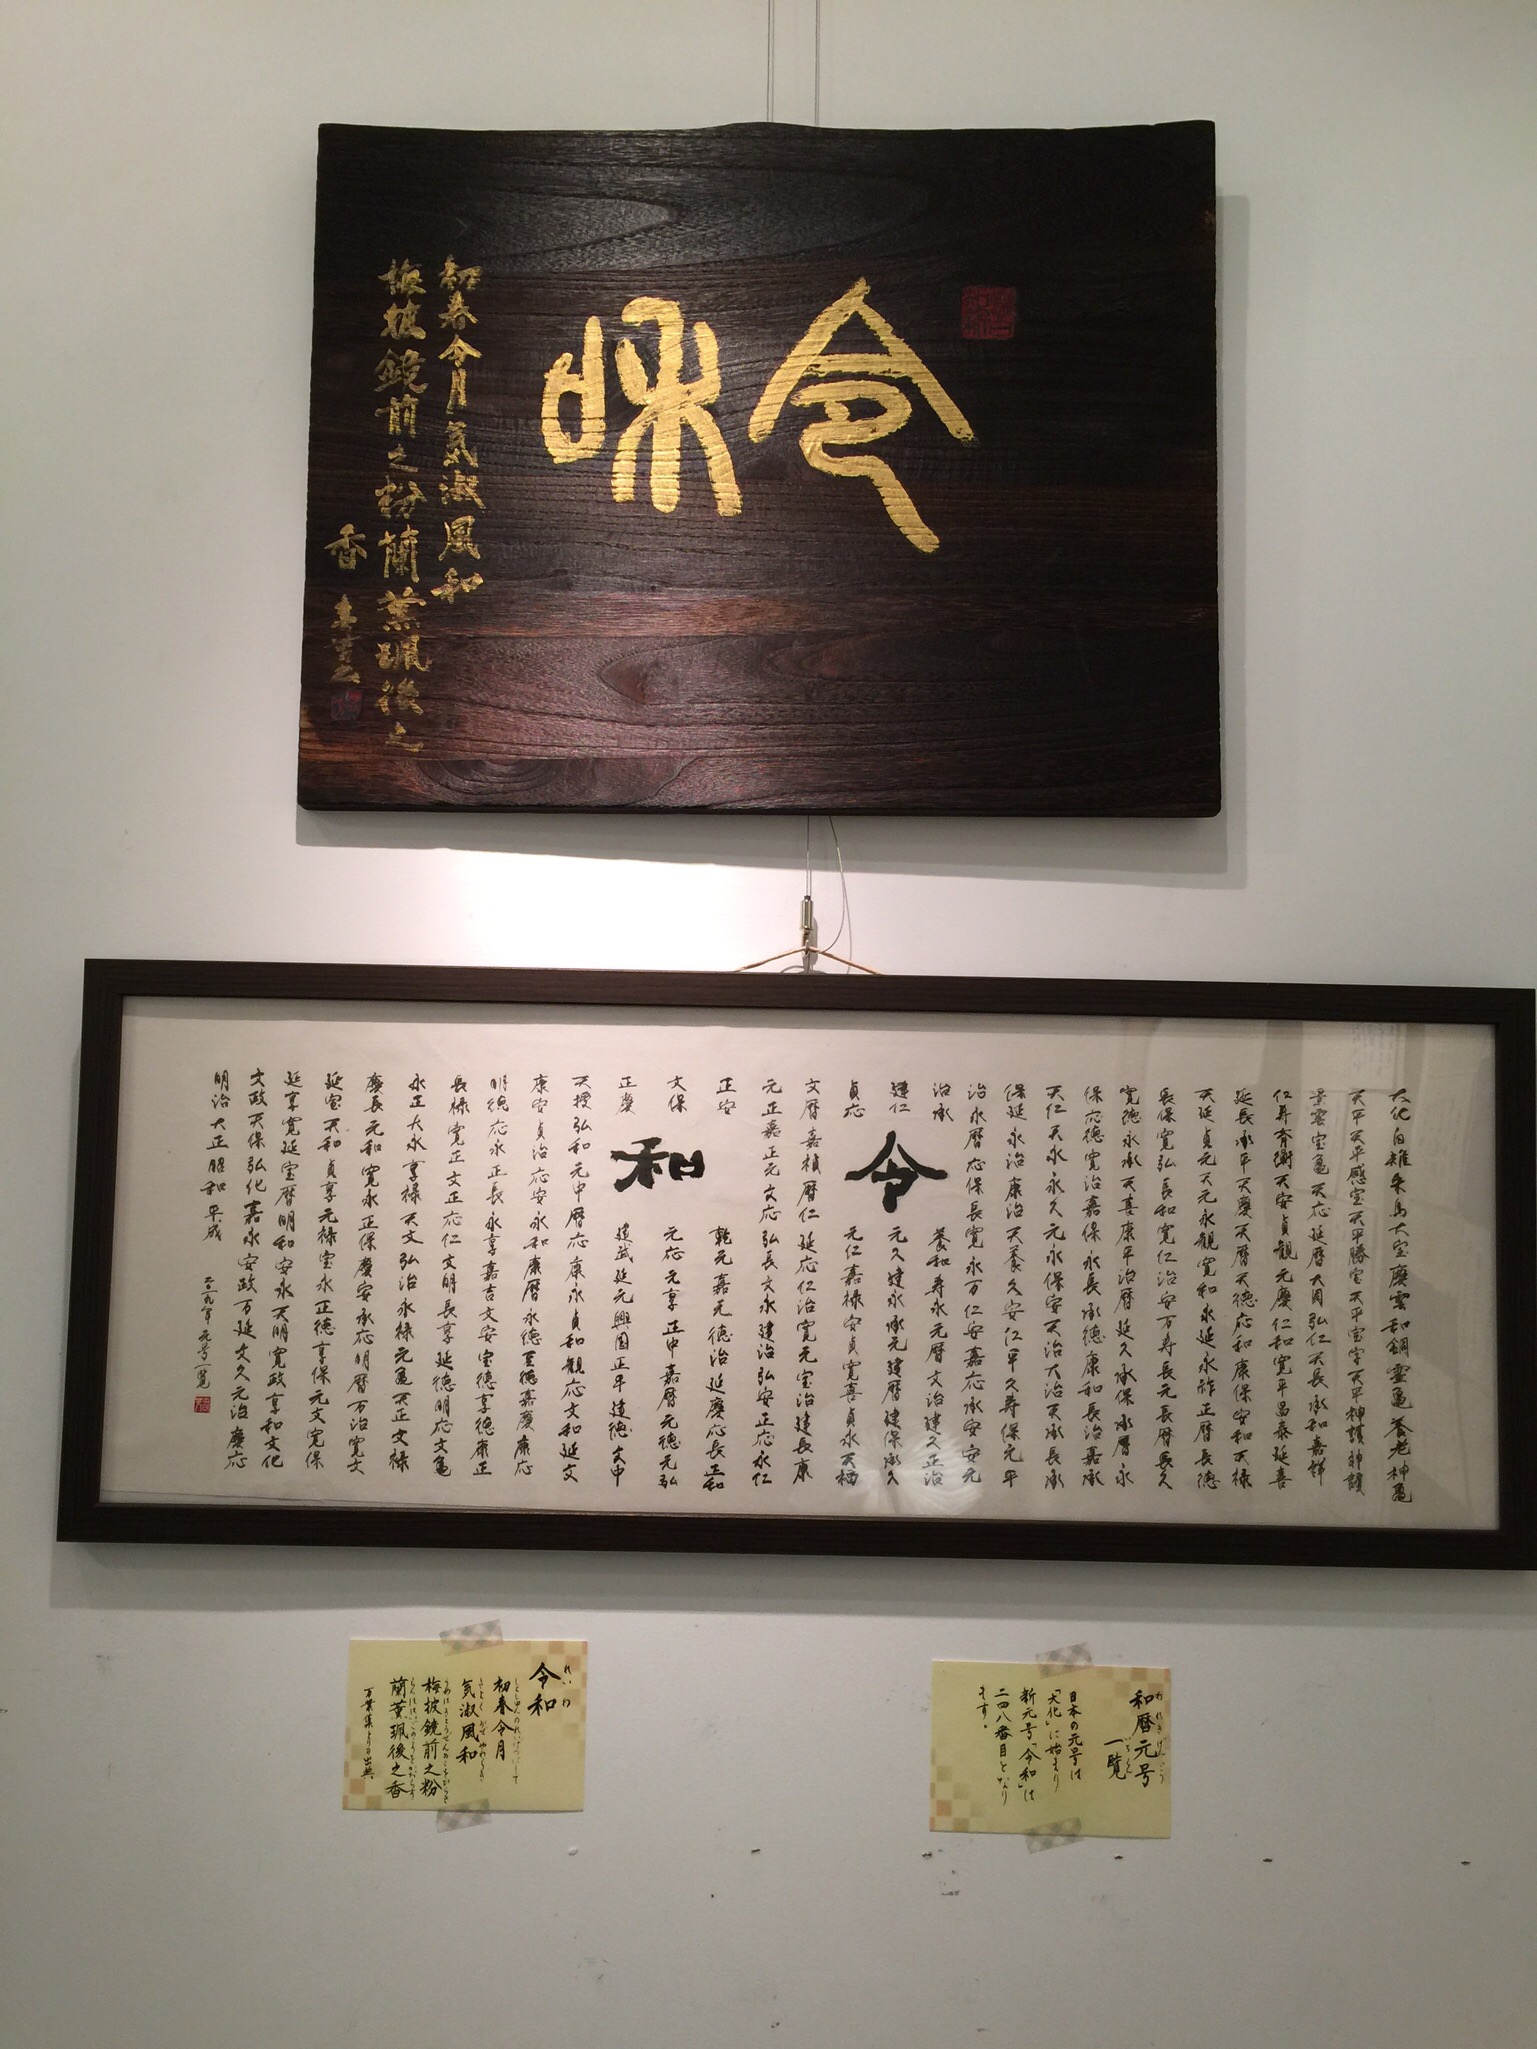 令和
初春令月氣淑風和
梅披鏡前之粉蘭薫珮後之
香
大化白雉朱鳥大宝慶雲和銅霊亀養老神亀
天平天平感宝天平勝宝天平宝字天平神護神護
景雲宝亀天応延暦大同弘仁天長承和嘉祥
仁寿斉衡天安貞観元慶仁和寛平昌泰延喜
延長承平天慶天暦天徳応和康保安和天禄
天延貞元天元永観寛和永延永祚正暦長徳
長保寛弘長和寛仁治安万寿長元長暦長久
寛徳永承天喜康平治暦延久承保承暦永
保応徳寛治嘉保永長承徳康和長治嘉承
天仁天永永久元永保安天治大治天承長承
保延永治康治天養久安仁平久寿保元平
治永暦応保長寛永万仁安嘉応承安安元
治承 養和寿永元暦文治建久正治
建仁 元久建永承元建暦建保承久
貞応 元仁嘉禄安貞寛喜貞永天福
令和
文暦嘉禎暦仁延応仁治寛元宝治建長康
元正嘉正元文応弘長文永建治弘安正応永仁
正安 乾元嘉元徳治延慶応長正和
文保 元応元享正中嘉暦元徳元弘
正慶 建武延元興国正平建徳文中
天授弘和元中暦応康永貞和観応文和延文
康安貞治応安永和康暦永徳至徳嘉慶康応
明徳応永正長永享嘉吉文安宝徳享徳康正
長禄寛正文正応仁文明長享延徳明応文亀
永正大永享禄天文弘治永禄元亀天正文禄
慶長元和寛永正保慶安承応明暦万治寛文
延宝天和貞享元禄宝永正徳享保元文寛保
延享寛延宝暦明和安永天明寛政享和文化
文政天保弘化嘉永安政万延文久元治慶応
明治大正昭和平成 二〇一九年元号一覧
和暦元号
一覧
日本の元号は
「大化」に始まり
新元号「令和」は
二四八番目となり
ます。
令和
れいわ
初春令月
気淑風和
梅披鏡前之粉
蘭薫珮後之香
万葉集より出典